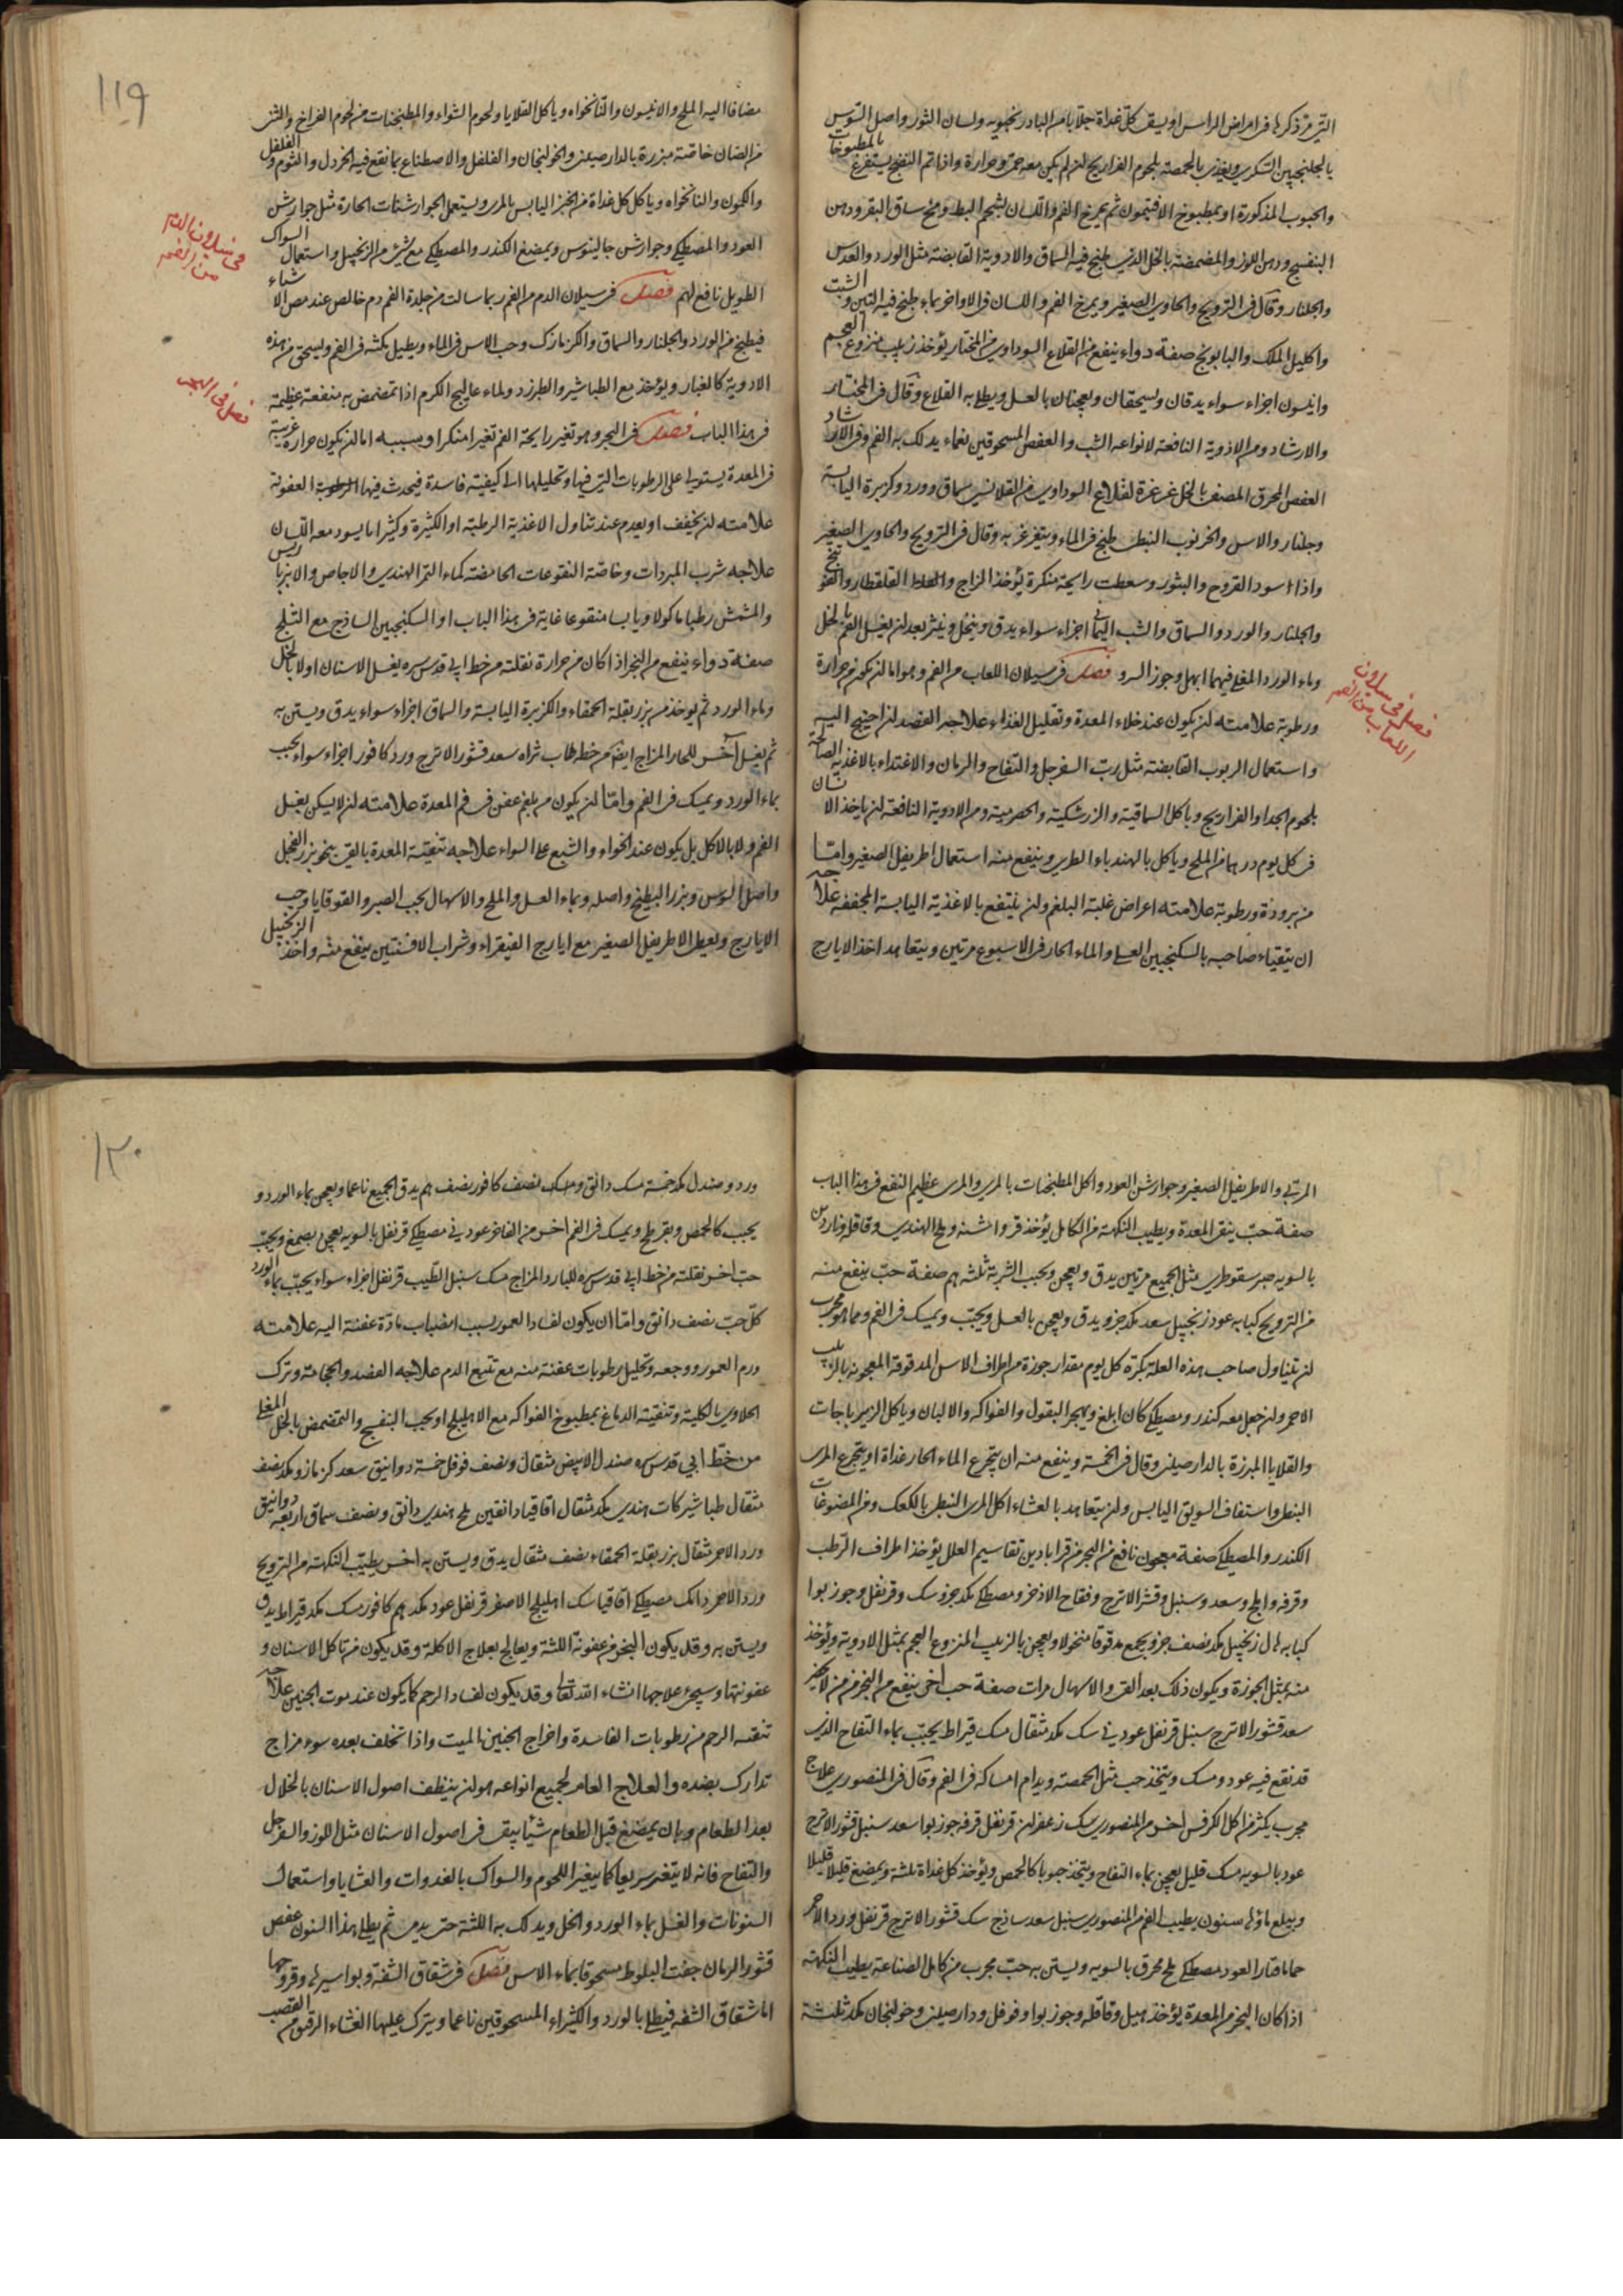 التي مر ذكرها في امراض الراس او يسقى كل غداة جلابا من البادرنجبويه ولسان الثور واصل السوس
بالجلنجبين السكري ويغذى بالحمصية بلحوم الفراريج ان لم يكن معه حمى وحرارة واذا تم النضج يستفرغ بالمطبوخات
والحبوب المذكورة او بمطبوخ الافتيمون ثم يمرخ الفم واللسان بشحم البط ومخ ساق البقر ودهن
البنفسج ودهن اللوز والمضمضة بالخل الذي طبخ فيه السماق والادوية القابضة مثل الورد والعدس
والجلنار وقال في الترويح والحاوي الصغير ويمرخ الفم واللسان في الاواخر بماء طبخ فيه التين والشبت
واكليل الملك والبابونج صفة دواء ينفع من القلاع السوداوي من المختار يؤخذ زبيب منزوع العجم
وانيسون اجزاء سواء يدقان ويسحقان ويعجنان بالعسل ويطلى به القلاع وقال في المختار
والارشاد ومن الادوية النافعة لانواعه الشب والعفص المسحوقين نعماء يدلك به الفم وفي الارشاد
العفص المحرق المصفى بالخل غرغرة لقلاع السوداوي من القلانسي سماق وورد وكزبرة اليابسة
وجلنار والاس والخرنوب النبطي طبخ في الماء ويتغرغر به وقال في الترويح والحاوي الصغير
واذا اسود القروح والبثور وسعطت رايحة منكرة يؤخذ الزاج القلقطار
والجلنار والورد والسماق والشب اليماني اجزاء سواء يدق وينخل وينثر بعد ان يغسل الفم بالخل
وماء الورد المغلى فيهما ابهل وجوز السرو فصل في سيلان اللعاب من الفم وهو اما ان يكون من حرارة
ورطوبة علامته ان يكون عند خلاء المعدة وتقليل الغذاء علاجه الفصد ان احتيج اليه
واستعمال الربوب القابضة مثل رب السفرجل والتفاح والرمان والاغتداء بالاغذية الصالحة
بلحوم الجدا والفراريج وياكل السماقية والزرشكية والحصرمية ومن الادوية النافعة ان ياخذ الانسان
في كل يوم درهما من الملح وياكل بالهندباء الطري وينفع منه استعمال اطريفل الصغير واما
من برودة ورطوبة علامته اعراض غلبة البلغم وان ينتفع بالاغذية اليابسة المجففة علاجه
ان يتقياء صاحبه بالسكنجبين العسلي والماء الحار في الاسبوع مرتين ويتعاهد اخذ الايارج
فصل في سيلان
اللعاب من الفم
١١٩
مضافا اليه الملح والانيسون والنانخواه وياكل القلايا ولحوم الشواء والمطبخنات من لحوم الفراخ والثنر
من الضان خاصة مبزرة بالدارصيني والخولنجان والفلفل والاصطناع بما نقع فيه الخردل والثوم والفلفل
والكمون والنانخواه وياكل كل غداة من الخبز اليابس بالمري ويستعمل الجوارشنات الحارة مثل جوارشن
العود والمصطكي وجوارشن جالينوس ويمضغ الكندر والمصطكي مع شيء من الزنجبيل واستعمال السواك
الطويل نافع لهم فصل في سيلان الدم من الفم ربما سالت من جلدة الفم دم خالص عند مص الاشياء
فيطبخ من الورد والجلنار والسماق والكزمازك وحب الاس في الماء ويطيل مكثه في الفم ويسحق من هذه
الادوية كالغبار ويؤخذ مع الطباشير والطبرزد ولماء عاليج الكرم اذا تمضمض به منفعة عظيمة
في هذا الباب فصل في البخر وهو تغير رايحة الفم تغيرا منكرا وسببه اما ان يكون حرارة غريبة
في المعدة يستولي على الرطوبات التي فيها وتحليلها الى كيفية فاسدة فيحدث فيها الرطوبة العفونة
علامته ان يخفف او يعدم عند تناول الاغذية الرطبة او الكثيرة وكثيرا ما يسود معه اللسان
علاجه شرب المبردات وخاصة النقوعات الحامضة كماء التمر الهندي والاجاص والانبرباريس
والمشمش رطبا ماكولا ويابسا منقوعا غاية في هذا الباب او السكنجبين الساذج مع الثلج
صفة دواء ينفع من البخر اذا كان من حرارة نقلته من خط ابي قدس سره يغسل الاسنان اولا بالخل
وماء الورد ثم يوخذ من بزر بقلة الحمقاء والكزبرة اليابسة والسماق اجزاء سواء يدق ويستن به
ثم يغسل آخر للحار المزاج ايضا من خط طاب ثراه سعد قشور الاترج ورد كافور اجزاء سواء يحبب
بماء الورد ويمسك في الفم واما ان يكون من بلغم عفن في فم المعدة علامته ان لا يسكن بغسل
الفم ولا بالاكل بل يكون عند الخواء والشبع على السواء علاجه تنقية المعدة بالقي بنحو بزر الفجل
واصل السوس وبزر البطيخ واصله وبماء العسل والملح والاسهال بحب الصبر والقوقايا وحب
الايارج ويعطى الاطريفل الصغير مع ايارج الفيقراء وشراب الافسنتين ينفع منه واخذ الزنجبيل
في سيلان الدم
من الفم
فصل في البخر
المربى والاطريفل الصغير وجوارشن العود واكل المطبخنات بالمري والمري عظيم النفع في هذا الباب
صفة حب ينقي المعدة ويطيب النكهة من الكامل يؤخذ قرو اشنه وملح الهندي وقاقله وناردين
بالسويه صبر سقوطري مثل الجميع مرتين يدق ويعجن ويحبب الشربة ثلثه هم صفة حب ينفع منه
من الترويح كبابه عود زنجبيل سعد مكد جزو يدق ويعجن بالعسل ويحبب ويمسك في الفم ومما هو مجرب
ان يتناول صاحب هذه العلة بكرة كل يوم مقدار جوزة من اطراف الاس المدقوقة المعجونه بالزبيب
الاحمر وان جعل معه كندر ومصطكي كان ابلغ ويهجر البقول والفواكه والالبان وياكل الزيرباجات
والقلايا المبزرة بالدارصيني وقال في الخمسة وينفع منه ان يتجرع الماء الحار غداة او يتجرع المري
النبطي واستفاف السويق اليابس وان يتعاهد بالعشاء اكل المري النبطي بالكعك ومن المضوغات
الكندر والمصطكي صفة معجون نافع من البخر من قرابادين تقاسيم العلل يؤخذ اطراف الرطب
وقرفه وابلج وسعد وسنبل وقشر الاترج وفقاح الاذخر ومصطكي مكد جزو سك وقرنفل وجوزبوا
كبابه زنجبيل مكد نصف جزو يجمع مدقوقا منخولا ويعجن بالزبيب المنزوع العجم بمثل الادوية ويؤخذ
منه بمثل الجوزة ويكون ذلك بعد القي والاسهال مرات صفة حب اخر ينفع من البخر
سعد قشور الاترج سنبل قرنفل عود ني سك مكد مثقال مسك قيراط يحبب بماء التفاح الذي
قد نقع فيه عود ومسك ويتخذ حب مثل الحمصة ويدام امساكه في الفم وقال في المنصوري علاج
مجرب يكثر من اكل الكرفس اخر من المنصوري سك زعفران قرنفل قرفه جوزبوا سعد سنبل قشور الاترج
عود بالسويه مسك قليل يعجن بماء التفاح ويتخذ حبوبا كالحمص ويؤخذ كل غداة ثلثة ويمضغ قليلا قليلا
ويبلع ماؤها سنون يطيب الفم من المنصوري سنبل سعد ساذج سك قشور الاترج قرنفل ورد الاحمر
حماما قتار العود مصطكي ملح محرق بالسويه ويستن به حب مجرب من كامل الصناعة يطيب النكهة
اذا كان البخر من المعدة يؤخذ هيل وقاقله وجوزبوا وفوفل ودارصيني وخولنجان مكد ثلثة
١٢٠
ورد وصندل مكد خمسة مسك دانق ومسك نصف كافور نصف هم يدق الجميع ناعما ويعجن بماء الورد و
يحبب كالحمص ويقرطح ويمسك في الفم اخر من الفاخر عود ني مصطكي قرنفل بالسويه يعجن بصمغ ويحبب
حب اخر نقلته من خط ابي قدس سره للبارد المزاج مسك سنبل الطيب قرنفل اجزاء سواء يحبب بماء الورد
كل حب نصف دانق واما ان يكون لفساد العمور بسبب انصباب مادة عفنة اليه علامته
ورم العمور ووجعه وتحليل رطوبات عفنة منه مع تتبع الدم علاجه الفصد والحجامة وترك
الحلاوي بالكلية وتنقية الدماغ بمطبوخ الفواكه مع الاهليلج او بحب البنفسج والتمضمض بالخل المغلى
من خط ابي قدس سره صندل الابيض مثقال ونصف فوفل خمسة دوانيق سعد كزمازو مكد نصف
مثقال طباشير كات هندي مكد مثقال اقاقيا دانقين ملح هندي دانق ونصف سماق اربعة دوانيق
ورد الاحمر مثقال بزر بقلة الحمقاء نصف مثقال يدق ويستن به اخر يطيب النكهة من الترويح
ورد الاحمر دانك مصطكي اقاقيا سك اهليلج الاصفر قرنفل عود مكد هم كافور مسك مكد قيراط يدق
ويستن به وقد يكون البخر من عفونة اللثة ويعالج بعلاج الاكلة وقد يكون من تاكل الاسنان و
عفونتها وسيجئ علاجها انشاء الله تعالى وقد يكون لفساد الرحم كما يكون عند موت الجنين علاجه
تنقية الرحم من رطوبات الفاسدة واخراج الجنين الميت واذا تخلف بعده سوء مزاج
تدارك بضده والعلاج العام لجميع انواعه هو ان ينظف اصول الاسنان بالخلال
بعد الطعام وبان يمضغ قبل الطعام شيئا يبقى في اصول الاسنان مثل اللوز والسفرجل
والتفاح فانه لا يتغير سريعا كما يتغير اللحوم والسواك بالغدوات والعشايا واستعمال
السنونات والغسل بماء الورد والخل ويدلك به اللثة حتى يدمى ثم يطلى بهذا السنون عفص
قشور الرمان جفت البلوط مسحوقا بماء الاس فصل في شقاق الشفة وبواسيرها وقروحها
اما شقاق الشفه فيطلى بالورد والكثيراء المسحوقين ناعما ويترك عليها الغشاء الرقيق من القصب